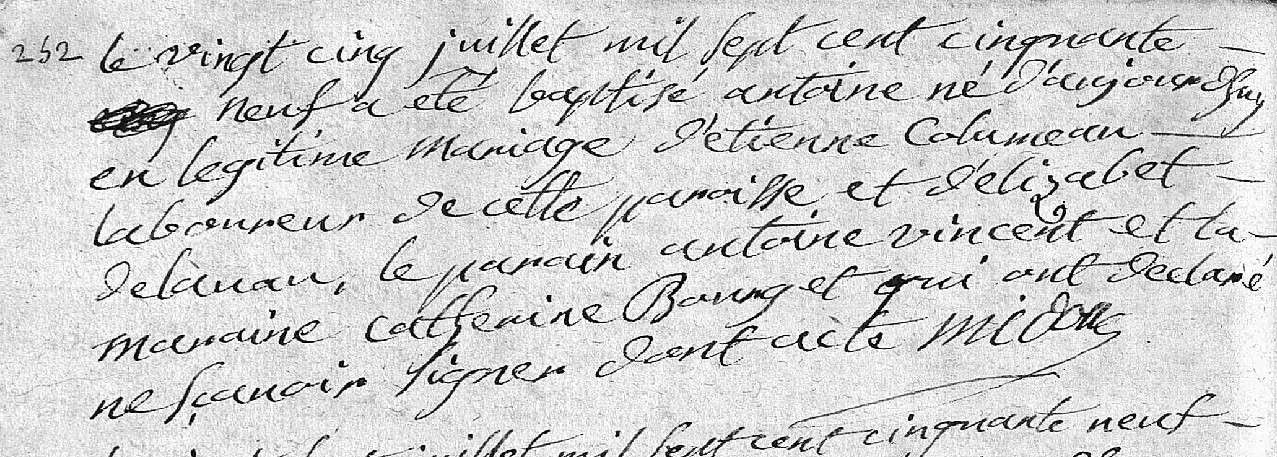 252 le vingt cinq juillet mil sept cent cinquante
neuf a eté baptisé antoine né d'aujourdhuy
en legitime mariage d'etienne Columeau
laboureur de cette paroisse et d'elizabet
delauau, le parain antoine vincent et la
maraine catherine Bourget qui ont declaré
ne sçauoir signer dont acte midon
juillet mil sept cent cinquante neuf